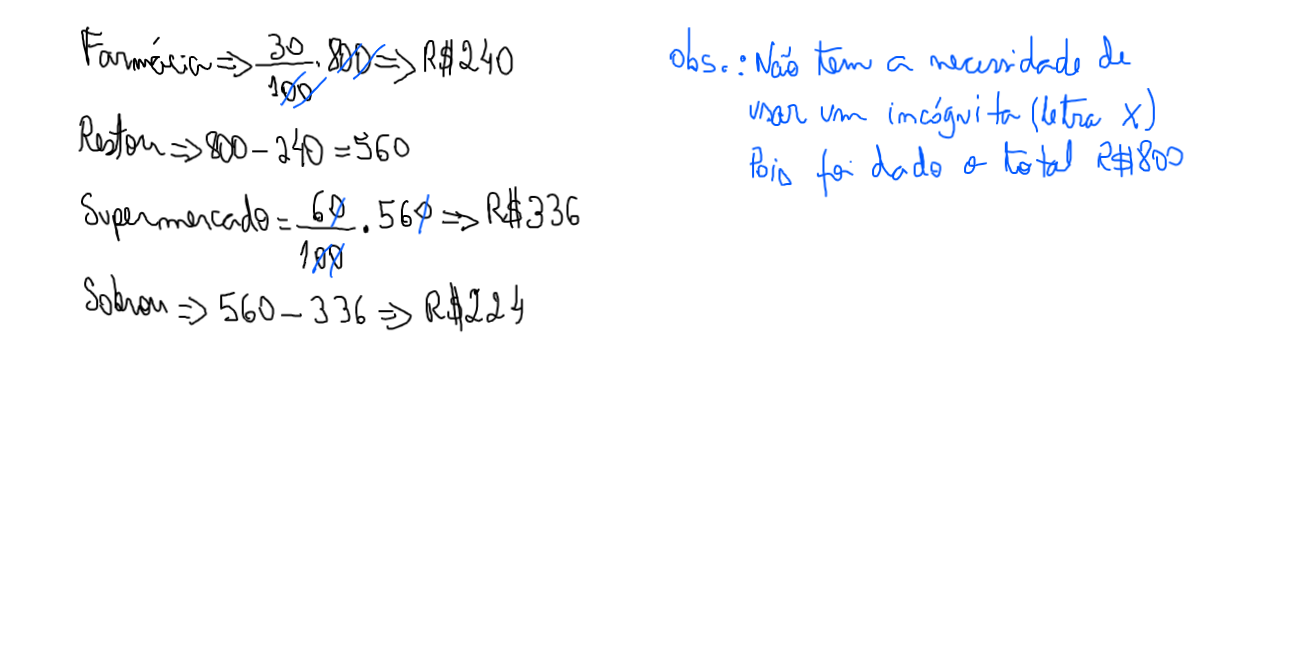 Farmácia => 30/100 . 800 => R$240
Restou => 800 - 240 = 560
Supermercado = 60/100 . 560 => R$336
Sobrou => 560 - 336 => R$224
obs.: Não tem a necessidade de
usar um incógnita (letra x)
Pois foi dado o total R$800